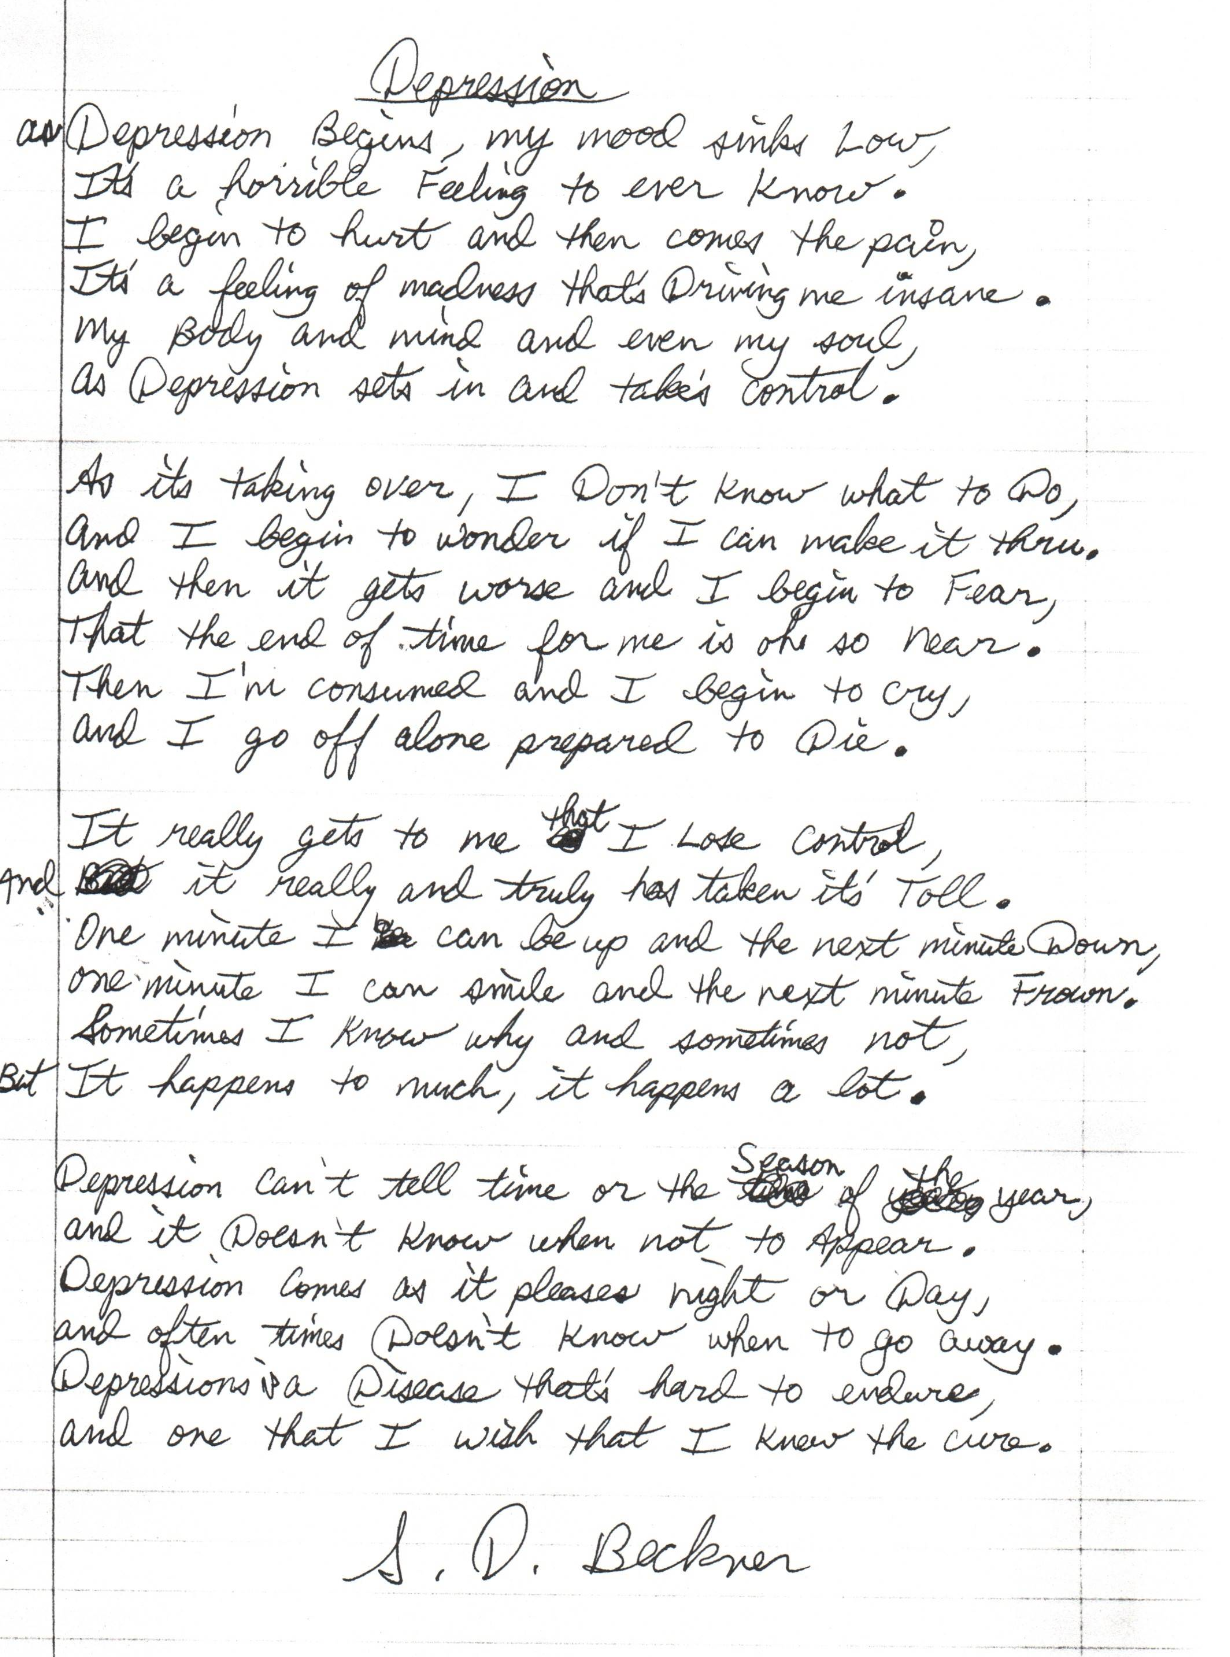 Depression
as Depression Begins, my mood sinks Low,
It's a horrible Feeling to ever Know.
I begin to hurt and then comes the pain,
It's a feeling of madness that's Driving me insane.
My Body and mind and even my soul,
as Depression sets in and take's control.
As its taking over, I Don't Know what to Do,
And I begin to wonder if I can make it thru.
and then it gets worse and I begin to Fear,
That the end of time for me is oh so near.
Then I'm consumed and I begin to cry,
and I go off alone prepared to Die.
It really gets to me that I Lose control,
And it really and truly has taken it's Toll.
One minute I can be up and the next minute Down,
one minute I can smile and the next minute Frown.
Sometimes I Know why and sometimes not,
But It happens to much, it happens a lot.
Depression can't tell time or the Season of the year,
and it Doesn't Know when not to Appear.
Depression comes as it pleases night or Day,
and often times Doesn't Know when to go away.
Depressions is a Disease that's hard to endure,
and one that I wish that I knew the cure.
S. D. Beckner